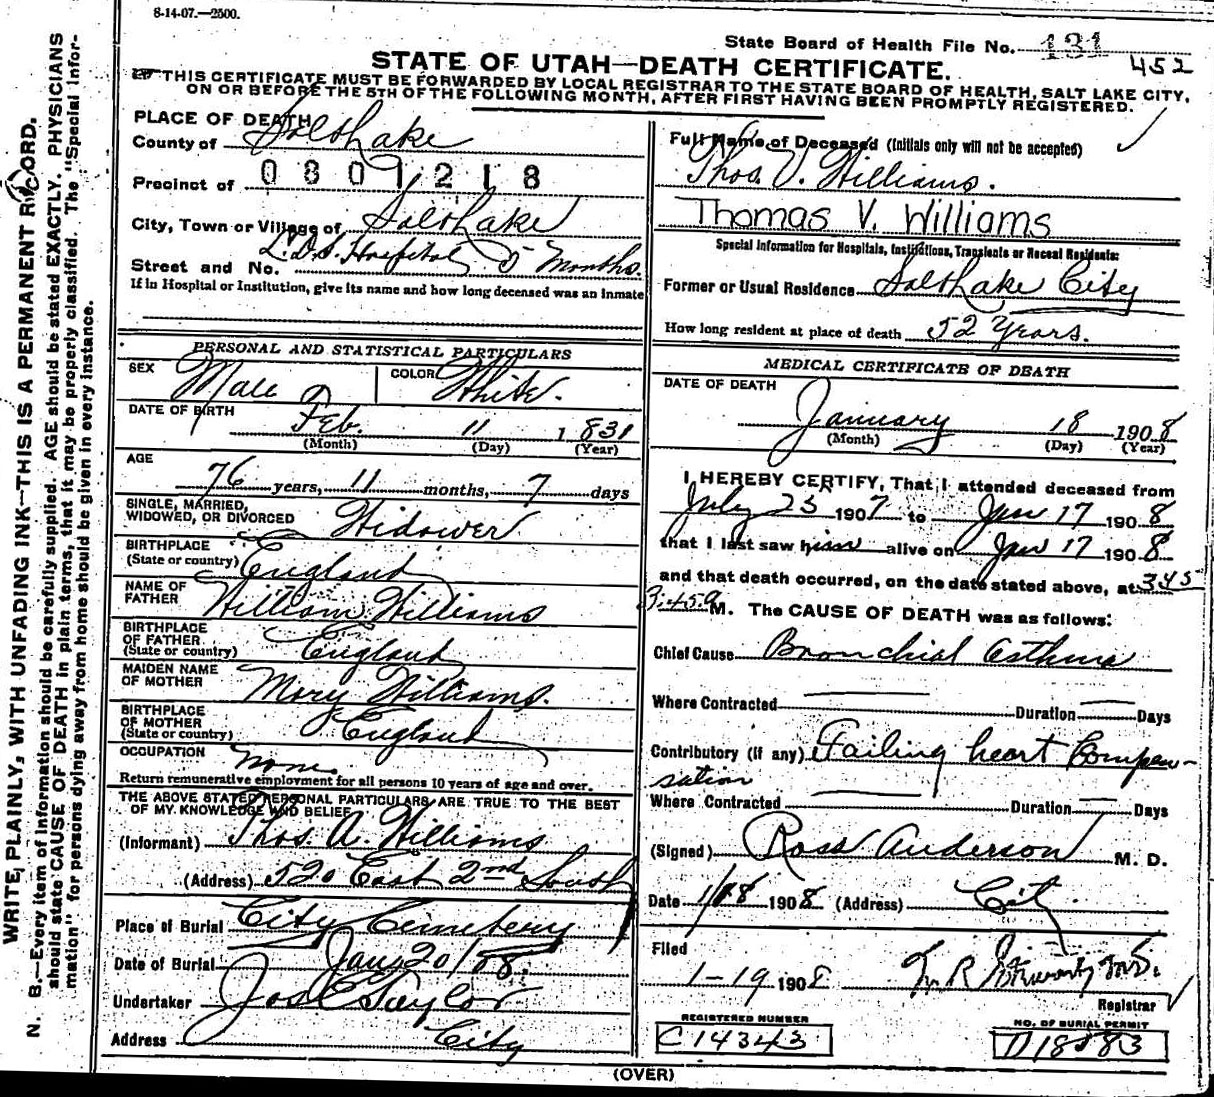 8-14-07.—2500.
State Board of Health File No. 131
452
STATE OF UTAH—DEATH CERTIFICATE.
THIS CERTIFICATE MUST BE FORWARDED BY LOCAL REGISTRAR TO THE STATE BOARD OF HEALTH, SALT LAKE CITY,
ON OR BEFORE THE 5TH OF THE FOLLOWING MONTH, AFTER FIRST HAVING BEEN PROMPTLY REGISTERED.
WRITE PLAINLY, WITH UNFADING INK—THIS IS A PERMANENT RECORD.
N. B.—Every item of information should be carefully supplied. AGE should be stated EXACTLY. PHYSICIANS
should state CAUSE OF DEATH in plain terms, that it may be properly classified. The "Special Infor-
mation" for persons dying away from home should be given in every instance.
PLACE OF DEATH
County of Salt Lake
Precinct of 0301218
City, Town or Village of Salt Lake
Street and No. L.D.S. Hospital 5 Months.
If in Hospital or Institution, give its name and how long deceased was an inmate
PERSONAL AND STATISTICAL PARTICULARS
SEX Male COLOR White.
DATE OF BIRTH Feb. 11 1831
(Month) (Day) (Year)
AGE
76 years, 11 months, 7 days
SINGLE, MARRIED,
WIDOWED, OR DIVORCED Widower
BIRTHPLACE
(State or country) England
NAME OF
FATHER William Williams
BIRTHPLACE
OF FATHER
(State or country) England
MAIDEN NAME
OF MOTHER Mary Williams.
BIRTHPLACE
OF MOTHER
(State or country) England
OCCUPATION None.
Return remunerative employment for all persons 10 years of age and over.
THE ABOVE STATED PERSONAL PARTICULARS ARE TRUE TO THE BEST
OF MY KNOWLEDGE AND BELIEF
(Informant) Thos. A. Williams
(Address) 520 East 2nd South
Place of Burial City Cemetery
Date of Burial Jan 20/08.
Undertaker Jos E Taylor
Address City
Full Name of Deceased (Initials only will not be accepted)
Thos. V. Williams.
Thomas V. Williams
Special Information for Hospitals, Institutions, Transients or Recent Residents:
Former or Usual Residence Salt Lake City
How long resident at place of death 52 Years.
MEDICAL CERTIFICATE OF DEATH
DATE OF DEATH
January 18 1908
(Month) (Day) (Year)
I HEREBY CERTIFY, That I attended deceased from
July 25 1907 to Jan 17 1908
that I last saw him alive on Jan 17 1908
and that death occurred, on the date stated above, at 345
3:45 a M. The CAUSE OF DEATH was as follows:
Chief Cause Bronchial Asthma
Where Contracted Duration Days
Contributory (if any) Failing heart Compen-
sation
Where Contracted Duration Days
(Signed) Ross Anderson M. D.
Date 1908 (Address) City
Filed
1-19 1908
Registrar
REGISTERED NUMBER
C 14343
NO. OF BURIAL PERMIT
D18883
(OVER)